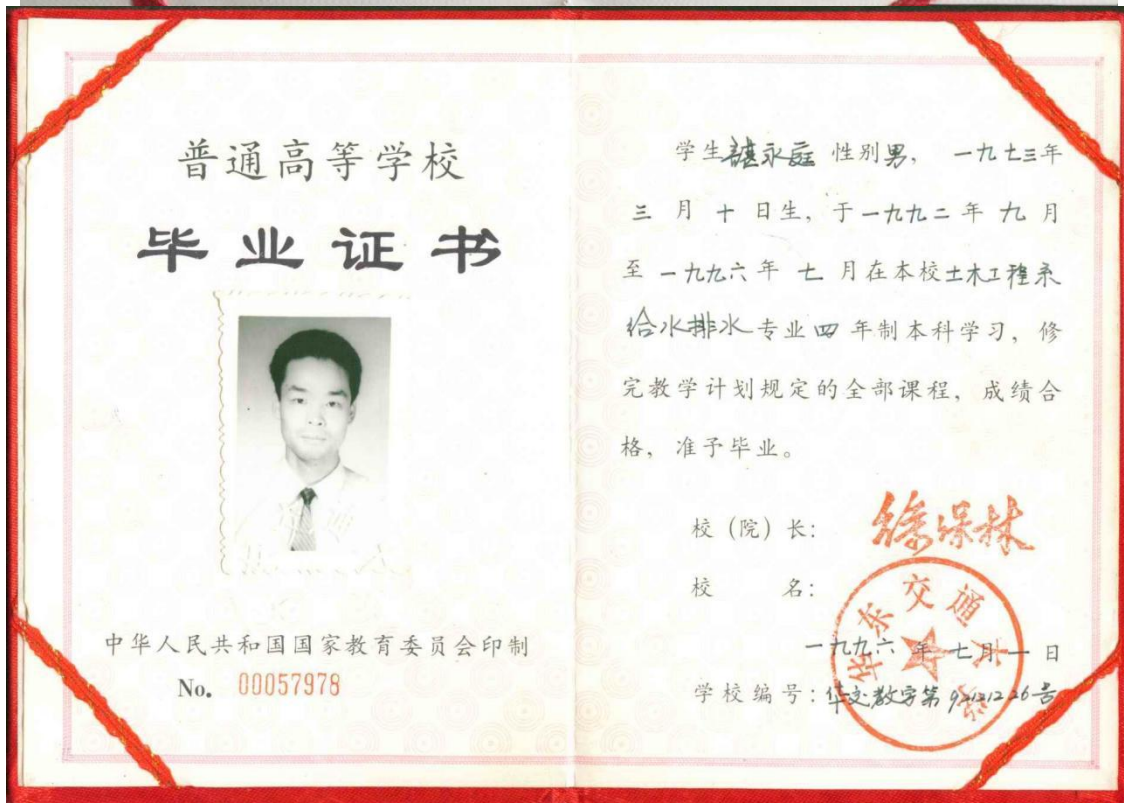 普通高等学校
毕业证书
中华人民共和国国家教育委员会印制
No. 00057978
学生 永庭 性别男，一九七三年
三月十日生，于一九九二年九月
至一九九六年七月在本校土木工程系
给水排水专业四年制本科学习，修
完教学计划规定的全部课程，成绩合
格，准予毕业。
校（院）长：徐保林
校 名：
华东交通大学
一九九六年七月一日
学校编号：华交教字第 号